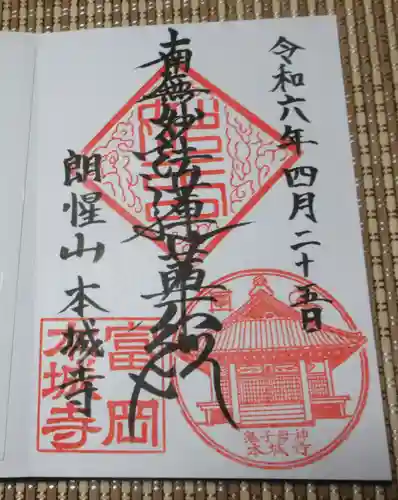 令和六年四月二十五日
南無妙法蓮華経
朗惺山 本城寺
富岡
本城寺
鬼子母神
本城寺